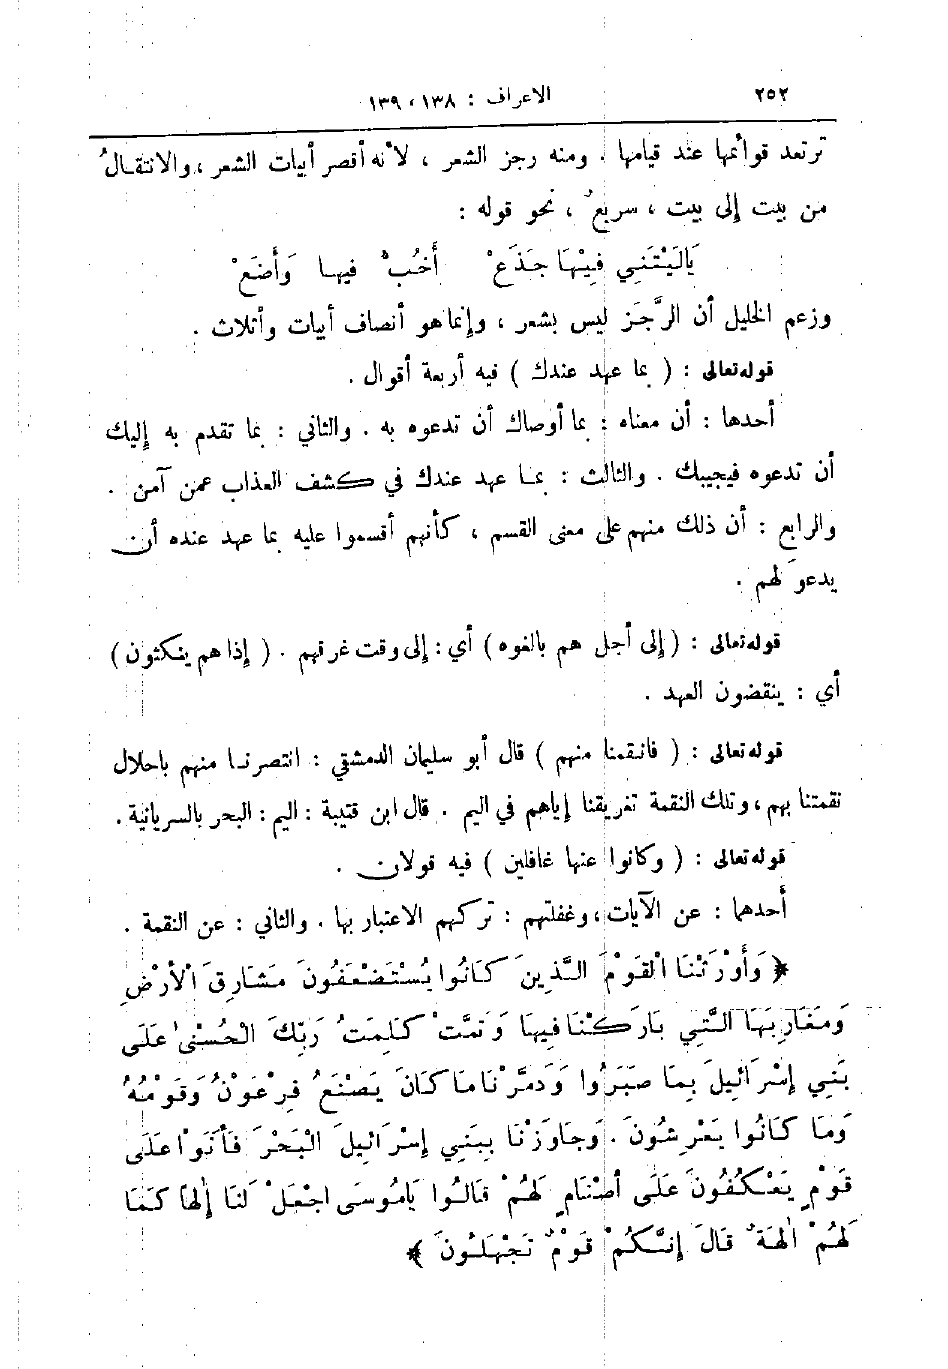 ٢٥٢ الاعراف : ١٣٨ ، ١٣٩
ترتعد قوائمها عند قيامها . ومنه رجز الشعر ، لأنه أقصر أبيات الشعر ، والانتقالُ
من بيت إلى بيت ، سريعٌ ، نحو قوله :
يَالَيْتَنِي فِيْهَا جَذَعْ أَخُبُّ فيها وَأَضَعْ
وزعم الخليل أن الرَّجَز ليس بشعر ، وإنما هو أنصاف أبيات وأثلاث .
قوله تعالى : ( بما عهد عندك ) فيه أربعة أقوال .
أحدها : أن معناه : بما أوصاك أن تدعوه به . والثاني : بما تقدم به إليك
أن تدعوه فيجيبك . والثالث : بما عهد عندك في كشف العذاب عمن آمن .
والرابع : أن ذلك منهم على معنى القسم ، كأنهم أقسموا عليه بما عهد عنده أن
يدعوَ لهم .
قوله تعالى : ( إلى أجل هم بالغوه ) أي : إلى وقت غرقهم . ( إذا هم ينكثون )
أي : ينقضون العهد .
قوله تعالى : ( فانتقمنا منهم ) قال أبو سليمان الدمشقي : انتصرنا منهم باحلال
نقمتنا بهم ، وتلك النقمة تغريقنا إياهم في اليم . قال ابن قتيبة : اليم : البحر بالسريانية .
قوله تعالى : ( وكانوا عنها غافلين ) فيه قولان .
أحدهما : عن الآيات ، وغفلتهم : تركهم الاعتبار بها . والثاني : عن النقمة .
﴿ وَأَوْرَثْنَا الْقَوْمَ الَّذِينَ كَانُوا يُسْتَضْعَفُونَ مَشَارِقَ الْأَرْضِ
وَمَغَارِبَهَا الَّتِي بَارَكْنَا فِيهَا وَتَمَّتْ كَلِمَتُ رَبِّكَ الْحُسْنَىٰ عَلَى
بَنِي إِسْرَائِيلَ بِمَا صَبَرُوا وَدَمَّرْنَا مَا كَانَ يَصْنَعُ فِرْعَوْنُ وَقَوْمُهُ
وَمَا كَانُوا يَعْرِشُونَ . وَجَاوَزْنَا بِبَنِي إِسْرَائِيلَ الْبَحْرَ فَأَتَوْا عَلَى
قَوْمٍ يَعْكُفُونَ عَلَى أَصْنَامٍ لَهُمْ قَالُوا يَامُوسَى اجْعَلْ لَنَا إِلٰهاً كَمَا
لَهُمْ آلِهَةٌ قَالَ إِنَّكُمْ قَوْمٌ تَجْهَلُونَ ﴾